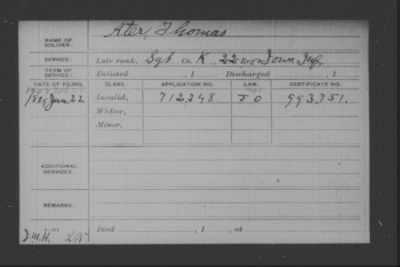 NAME OF SOLDIER: Ater, Thomas
SERVICE: Late rank, Sgt Co. K, 22 Reg't Iowa Inf,
TERM OF SERVICE: Enlisted , 1 Discharged , 1
DATE OF FILING. CLASS. APPLICATION NO. LAW. CERTIFICATE NO.
1889 Jan 22 Invalid, 712,248 J O 993.751.
Widow,
Minor,
ADDITIONAL SERVICES:
REMARKS:
Died , 1 , at